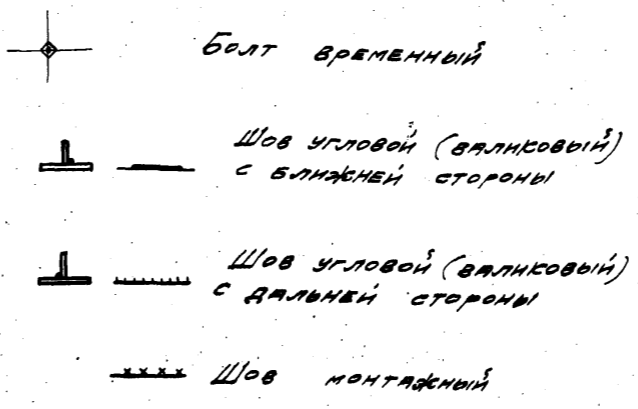 Болт временный
Шов угловой (валиковый)
с ближней стороны
Шов угловой (валиковый)
с дальней стороны
Шов монтажный